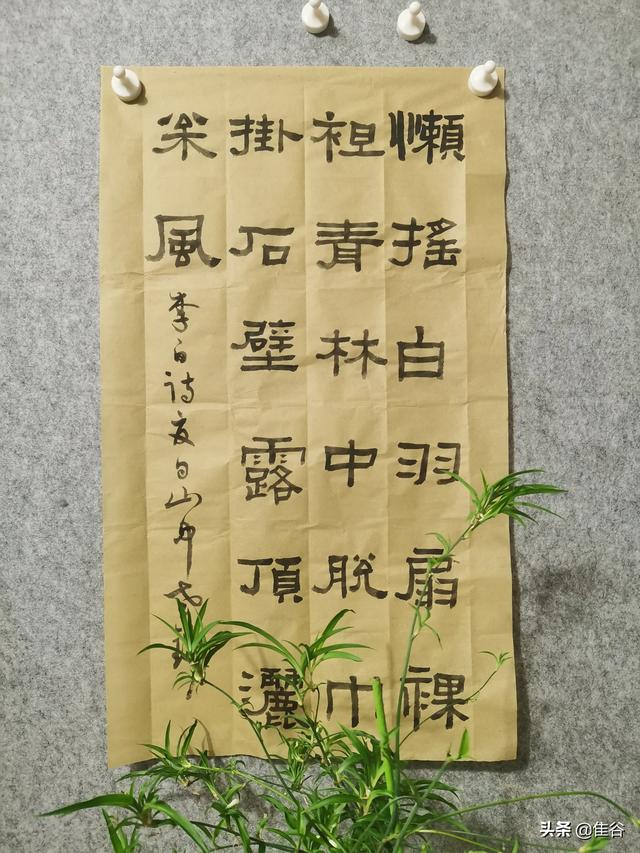 懶搖白羽扇裸
袒青林中脫巾
掛石壁露頂灑
枀風
李白诗夏日山中
头条 @隹谷